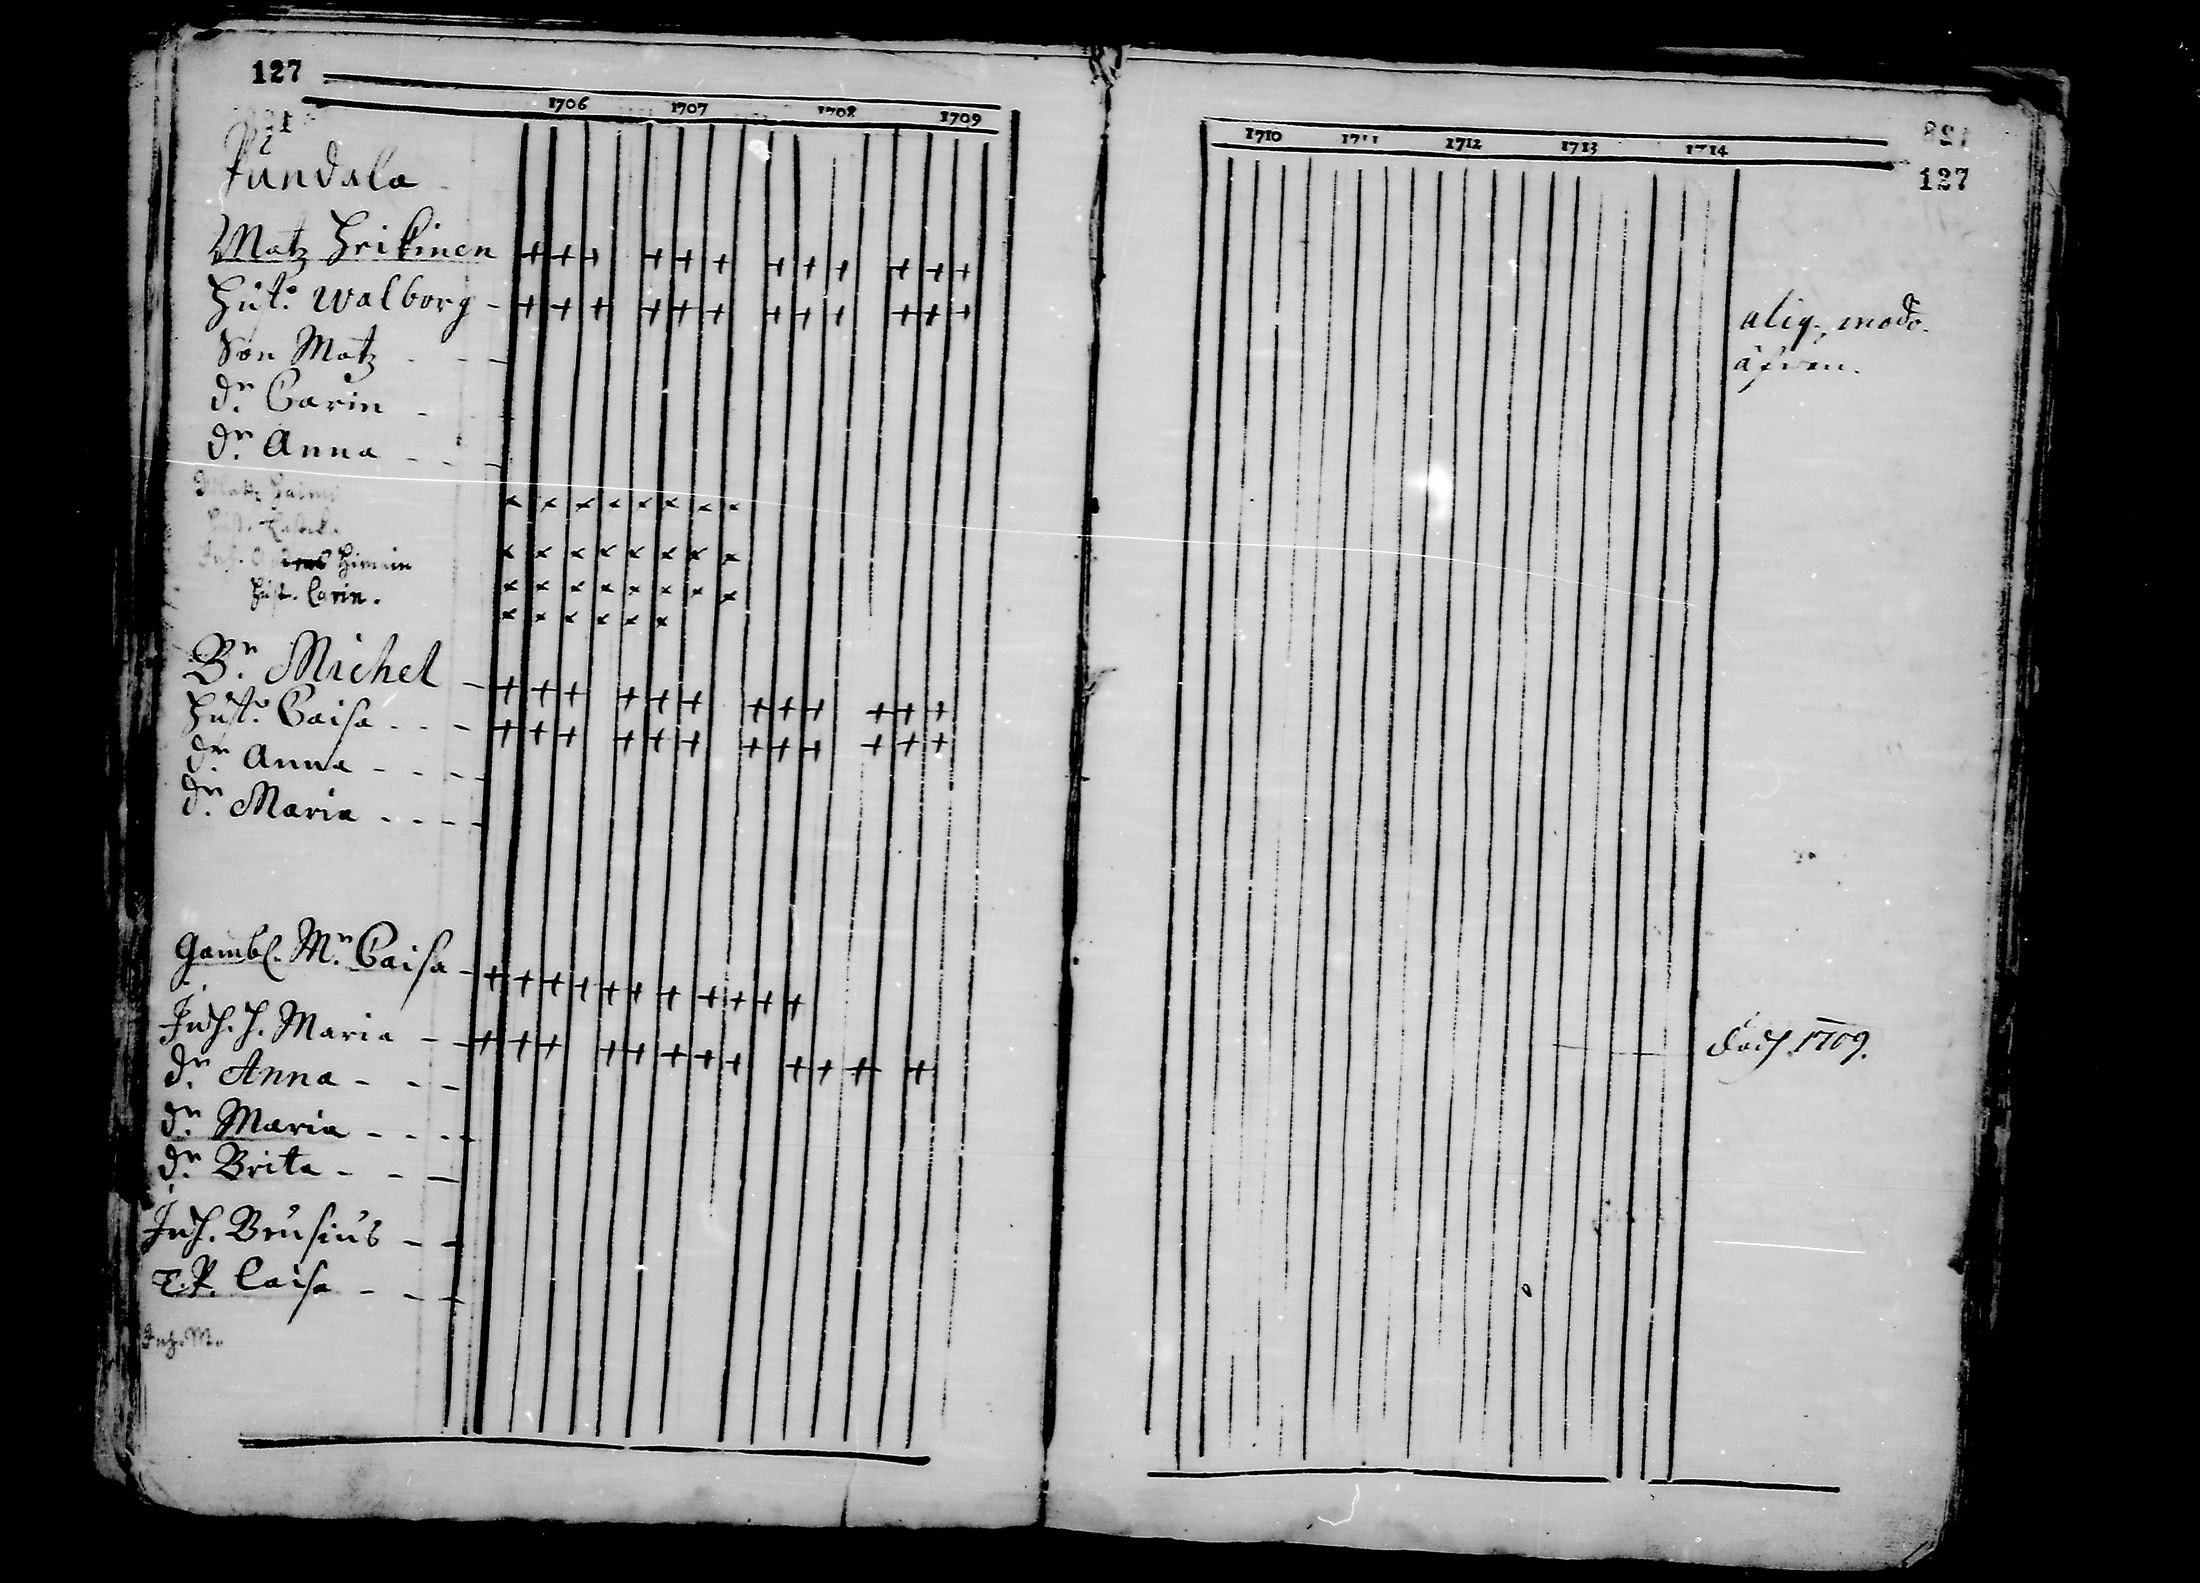 127
1706 1707 1708 1709
Pundala
Matz Hrikinen
Hust. Walborg
Son Matz
Dr. Carin
Dr. Anna
Matz
Hust.
Hust. Carin.
Br. Michel
Hust. Caisa
Dr. Anna
Dr. Maria
Gambl. Mr. Caisa
Inh. H. Maria
Dr. Anna
Dr. Maria
Dr. Brita
Inh. Brusius
T.P. Caisa
Inh. M.
1710 1711 1712 1713 1714
128
127
aliq. modo.
äfven.
Död 1709.